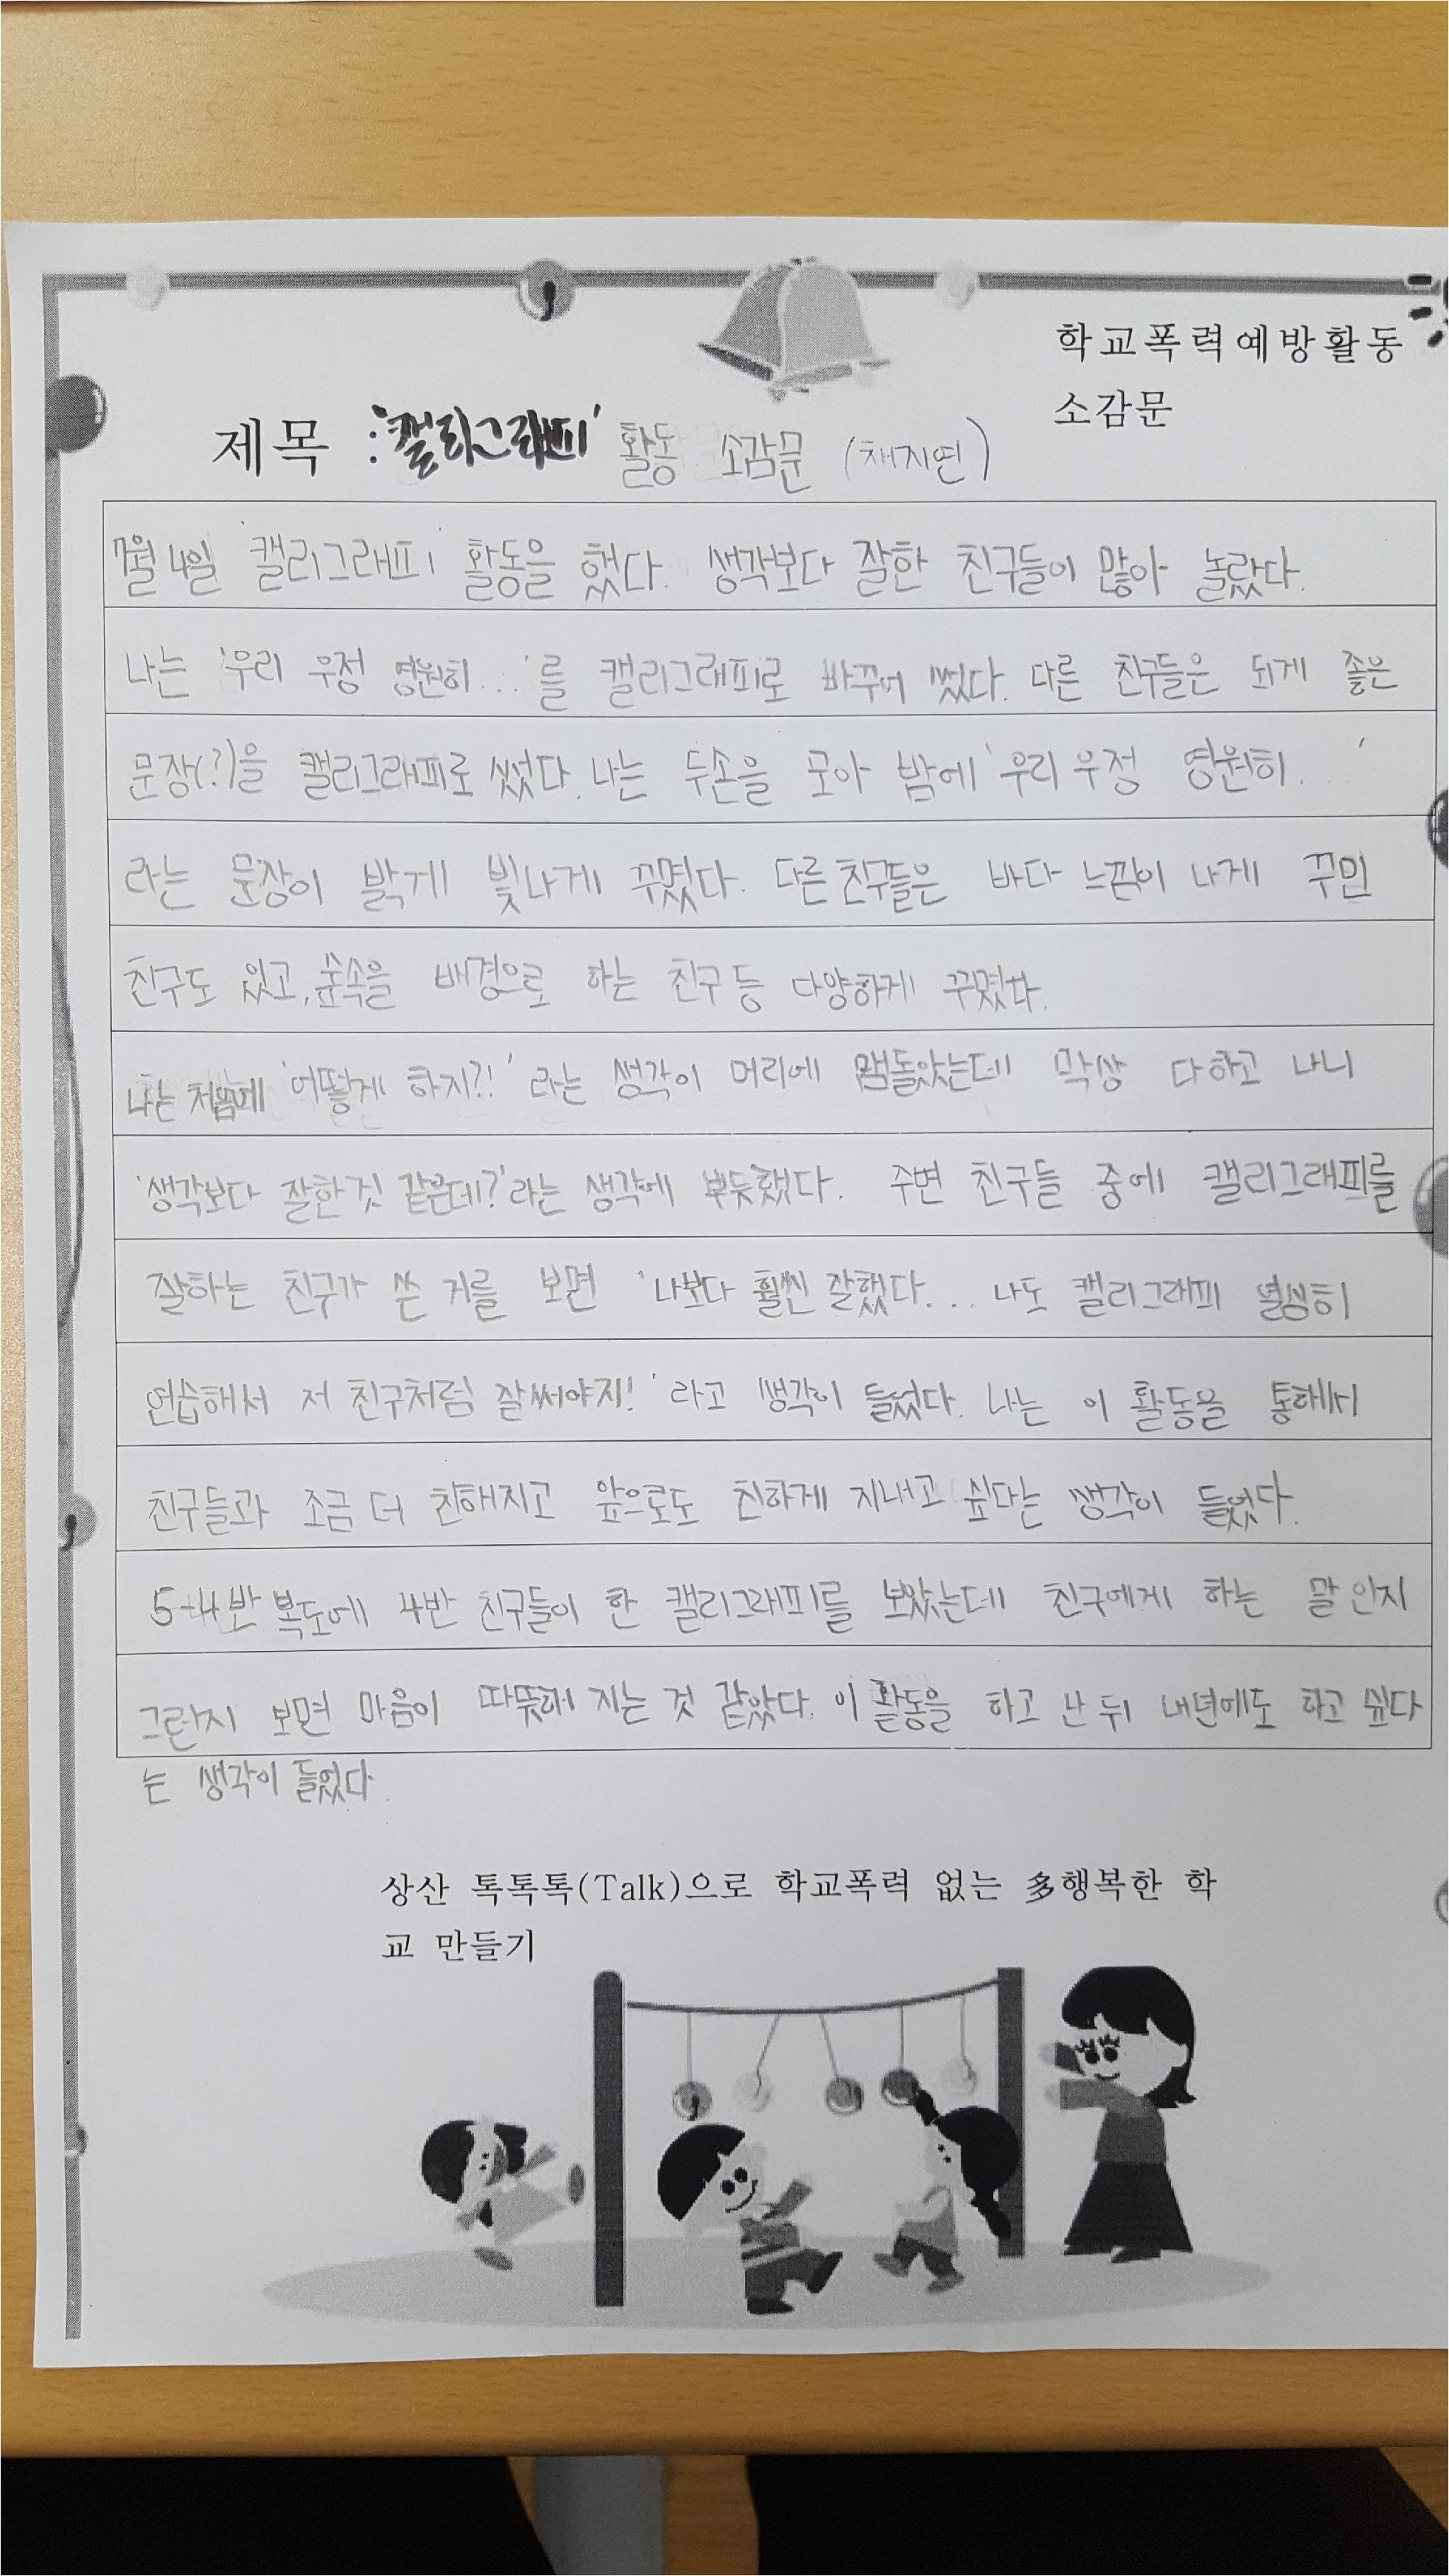 학교폭력예방활동
소감문
제목 : '캘리그래피' 활동 소감문 (채지연)
7월 4일 '캘리그래피' 활동을 했다. 생각보다 잘한 친구들이 많아 놀랐다.
나는 '우리 우정 영원히...'를 캘리그래피로 바꾸어 썼다. 다른 친구들은 되게 좋은
문장(?)을 캘리그래피로 썼다. 나는 두손을 모아 밤에 '우리 우정 영원히...'
라는 문장이 밝게 빛나게 꾸몄다. 다른 친구들은 바다 느낌이 나게 꾸민
친구도 있고, 숲속을 배경으로 하는 친구 등 다양하게 꾸몄다.
나는 처음에 '어떻게 하지?!' 라는 생각이 머리에 맴돌았는데 막상 다하고 나니
'생각보다 잘한것 같은데?'라는 생각에 뿌듯했다. 주변 친구들 중에 캘리그래피를
잘하는 친구가 쓴 거를 보면 '나보다 훨씬 잘했다... 나도 캘리그래피 열심히
연습해서 저 친구처럼 잘써야지!' 라고 생각이 들었다. 나는 이 활동을 통해서
친구들과 조금 더 친해지고 앞으로도 친하게 지내고 싶다는 생각이 들었다.
5-4반 복도에 4반 친구들이 한 캘리그래피를 보았는데 친구에게 하는 말인지
그런지 보면 마음이 따뜻해 지는 것 같았다. 이 활동을 하고 난 뒤 내년에도 하고 싶다
는 생각이 들었다.
상산 톡톡톡(Talk)으로 학교폭력 없는 多행복한 학
교 만들기